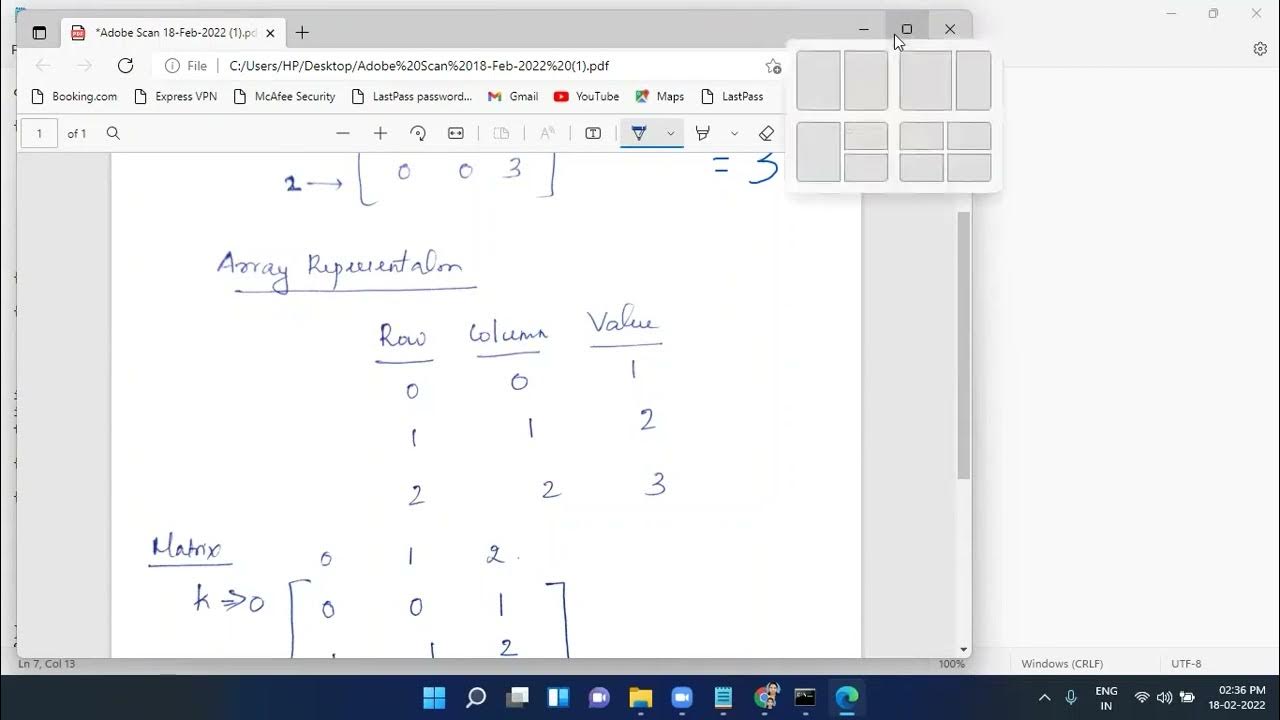 *Adobe Scan 18-Feb-2022 (1).pd
File C:/Users/HP/Desktop/Adobe%20Scan%2018-Feb-2022%20(1).pdf
Booking.com Express VPN McAfee Security LastPass password... Gmail YouTube Maps LastPass
1 of 1
2 → 0 0 3 = 3
Array Representaion
Row Column Value
0 0 1
1 1 2
2 2 3
Matrix 0 1 2
k ⇒ 0 0 0 1
1 2
Ln 7, Col 13 100% Windows (CRLF) UTF-8
ENG 02:36 PM
IN 18-02-2022